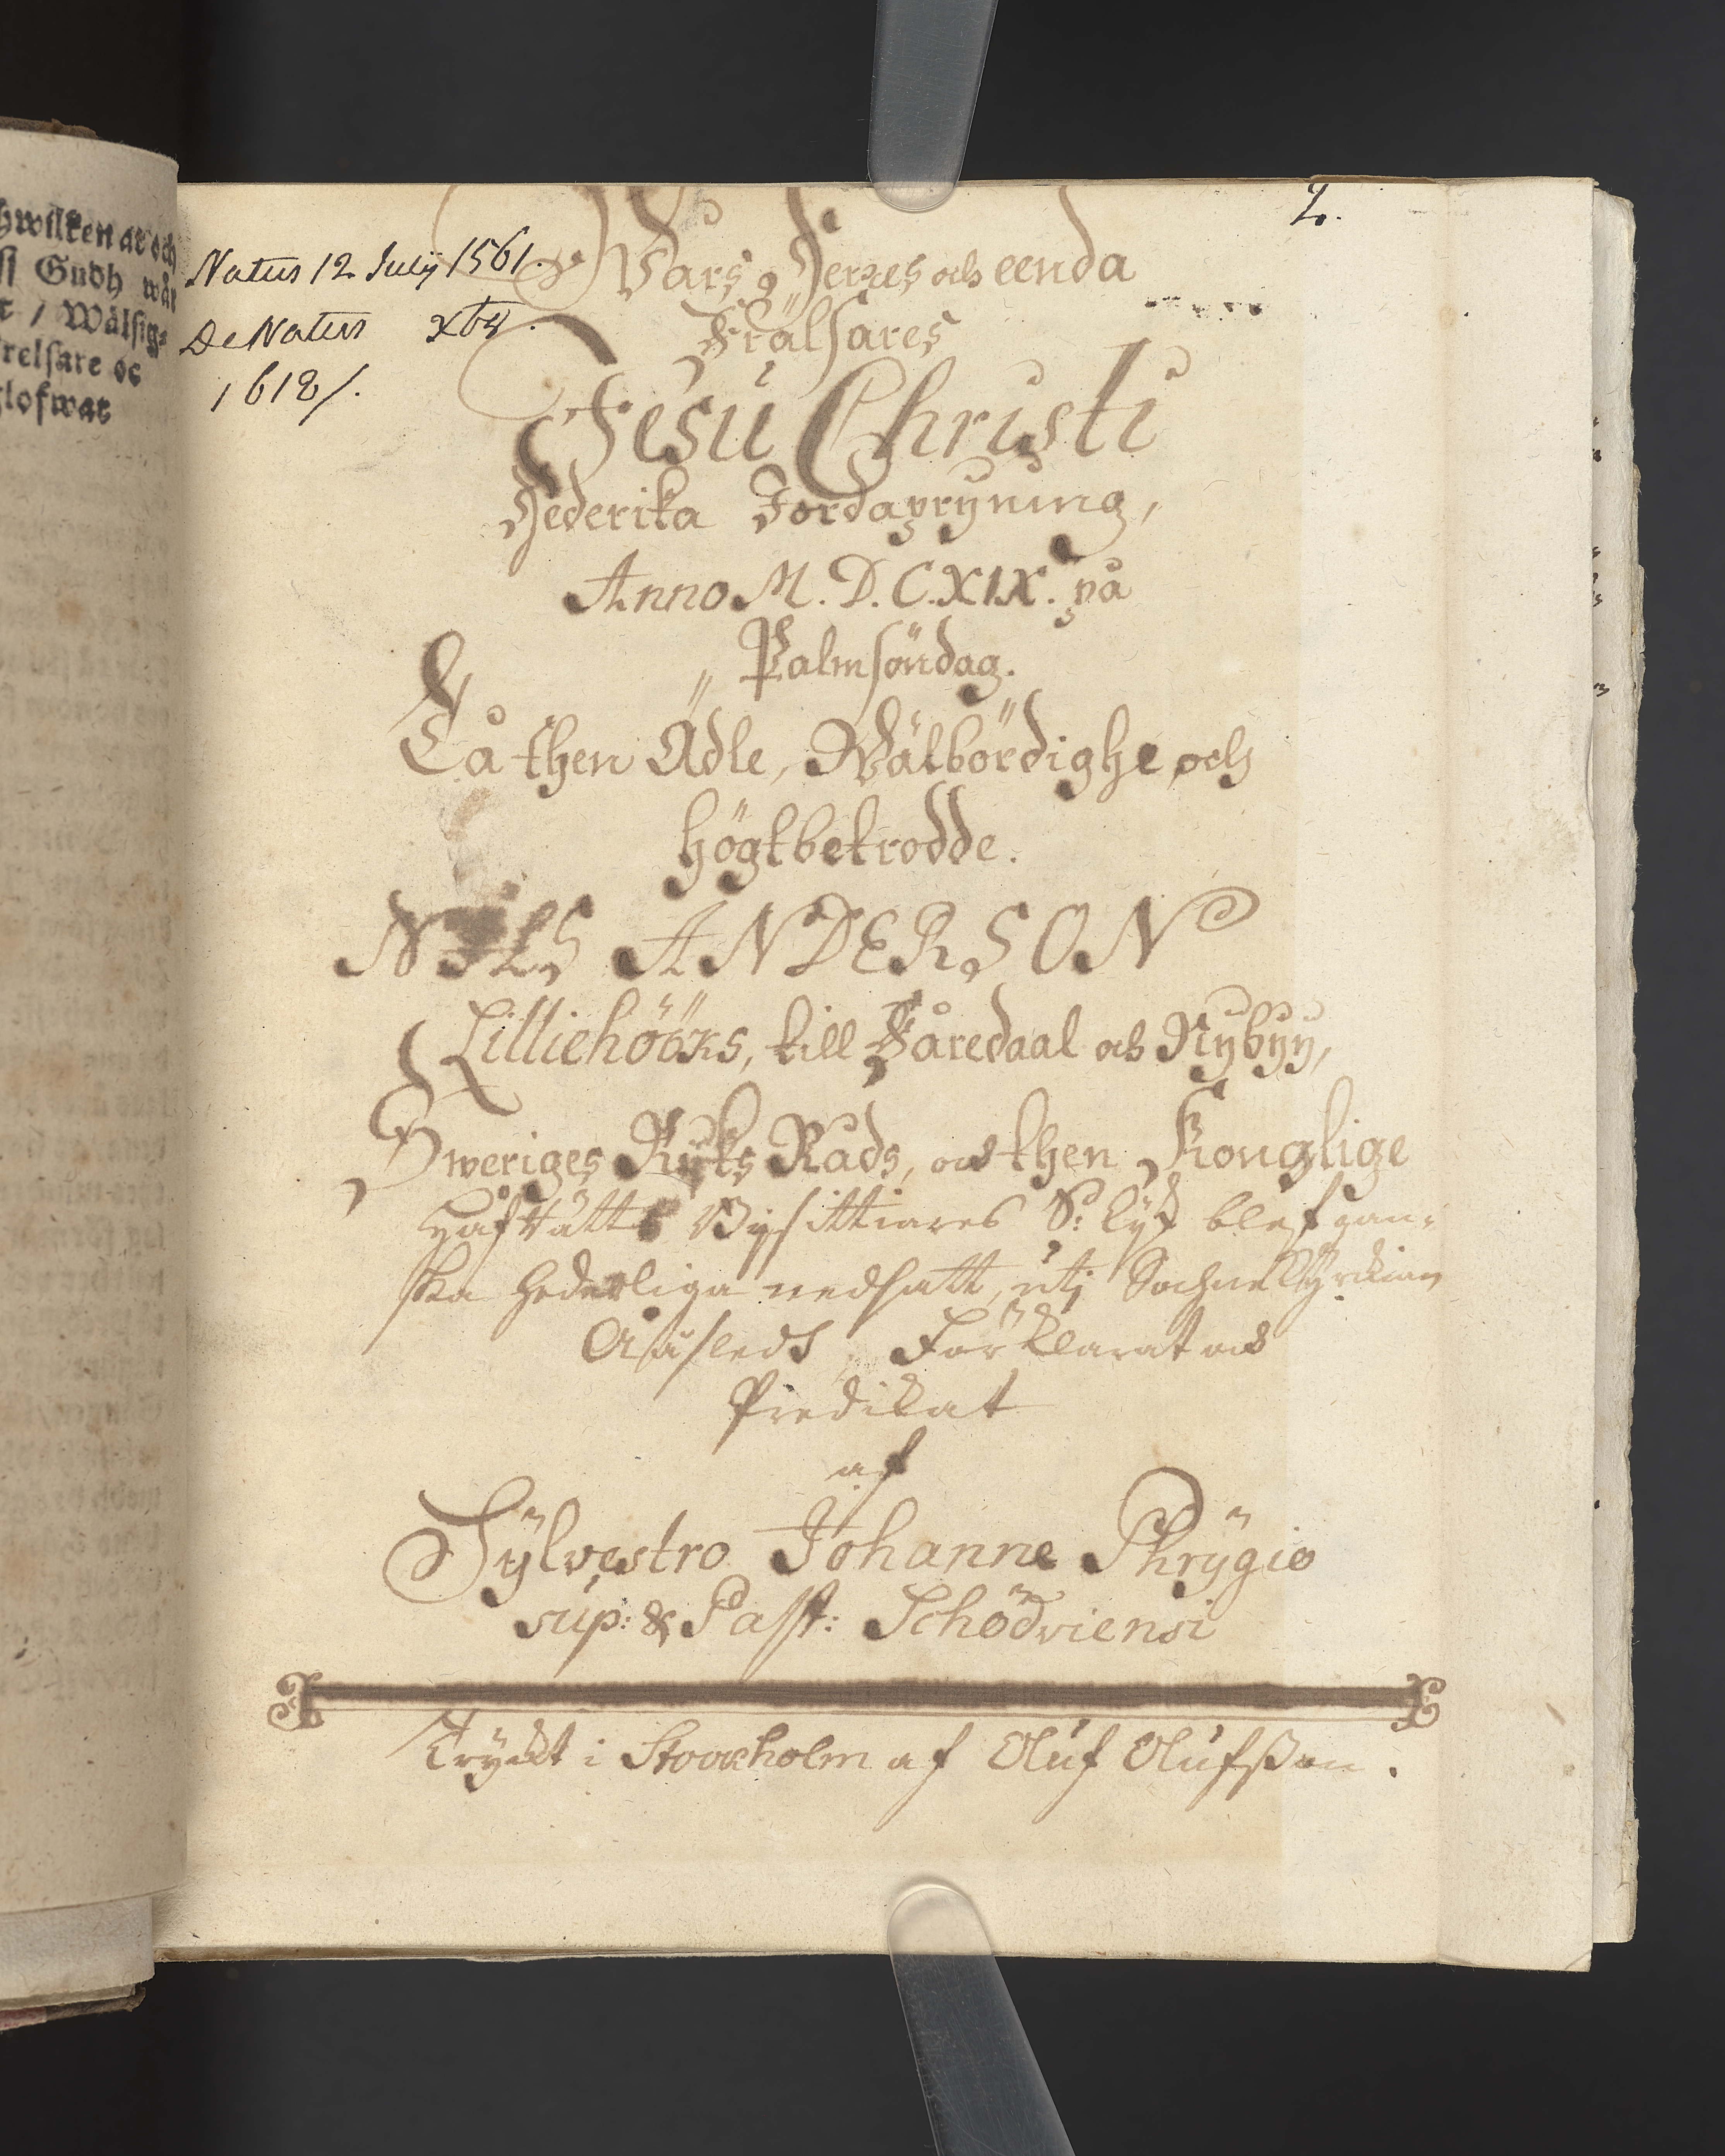 hwilken är och
st Gudh wår
t / Wälsig⸗
relsare oc
lofwat
2.
Natus 12 Julij 1561.
DeNatus xbr.
1618/.
Wårs Herres och eenda
Frälsares
Jesu Christi
Hederika Jordapryning,
Anno M.D.C.XIX. på
Palmsöndag.
Tå then Ädle, Wälbördighe och
högtbetrodde.
NILS ANDERSON
Lilliehööks, till Fåredaal och Nybyy,
Sweriges Rijks Råds, och then Konglige
Håfrätts Bijsittiares S: lijk blef gan⸗
ska hederliga nedsatt, utj Sochnekÿrckian
Aåsleds, Förklarat och
Predikat
af
Sÿlvestro Johanne Phrÿgio
sup: & Past: Schödviensi
Tryckt i Stockholm af Oluf Olufsson.